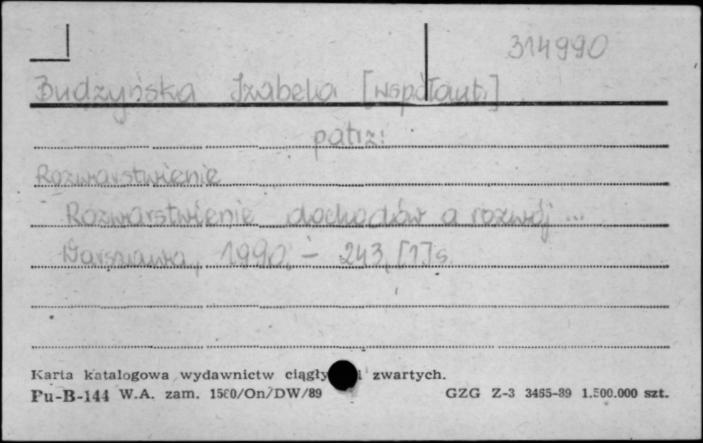 314990
Budzyńska Izabela [współaut.]
patrz:
Rozwarstwienie
Rozwarstwienie dochodów a rozwój ...
Warszawa, 1990. - 243, [1] s.
Karta katalogowa wydawnictw ciągły i zwartych.
Pu-B-144 W.A. zam. 1560/On/DW/89 GZG Z-3 3465-89 1.500.000 szt.